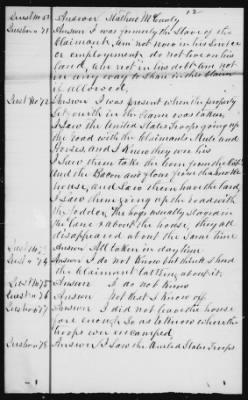 12
Quest No 51 Answer Nathan McCurdy
Question 71 Answer I was formerly the Slave of the
Claimant, am not now in his Service
or employment, do not live on his
land, am not in his debt, am not
in any way to share in this Claim
if allowed,
Quest No 72 Answer I was present when the property
set out in the Claim was taken,
I saw the United States Troops going up
the road with the Claimants Mule and
Horses, and I knew they was his
I saw them take the Corn from the Crib
And the Bacon and flour from the smoke
house, and I saw them have the lard,
I saw them going up the road with
the fodder, The hogs usually stayed in
the lane & about the house, they all
disappeared about the same time
Quest No 73 Answer All taken in day time
Quest No 74 Answer I do not know but think I heard
the Claimant talking about it.
Quest No 75 Answer I do not know
Question 76 Answer Not that I know of
Question 77 Answer I did not leave the house
far enough so as to know where the
troops were encamped,
Question 78 Answer I saw the United States Troops